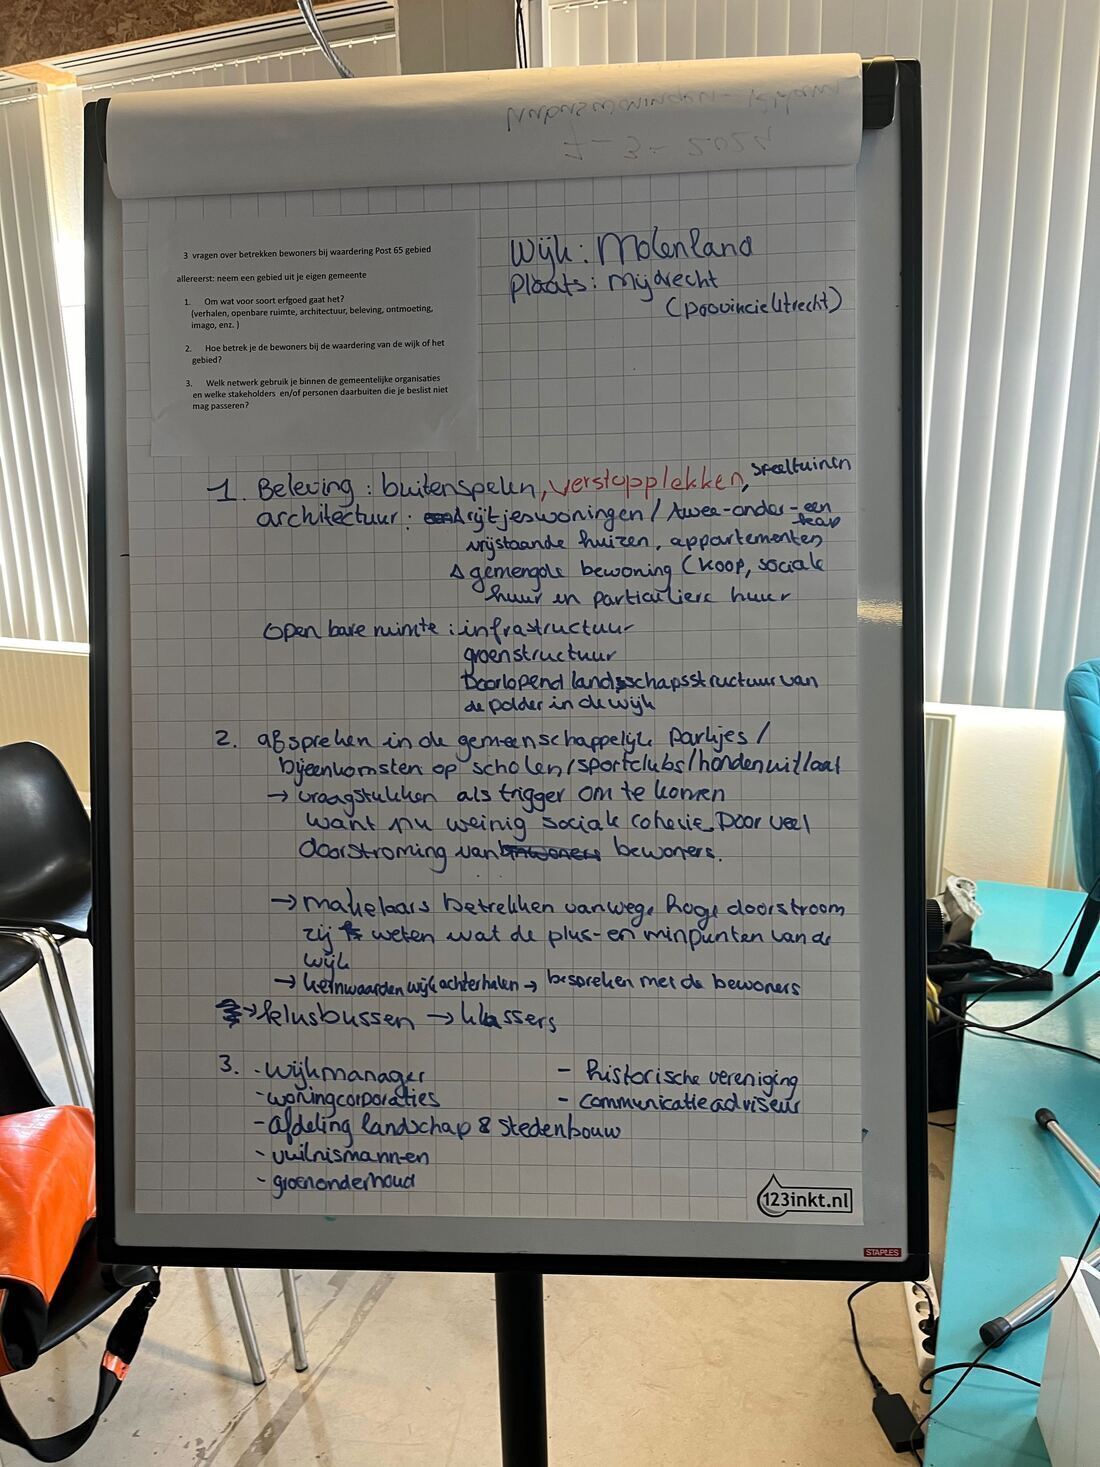 7-3-2024
3 vragen over betrekken bewoners bij waardering Post 65 gebied
allereerst: neem een gebied uit je eigen gemeente
1. Om wat voor soort erfgoed gaat het?
(verhalen, openbare ruimte, architectuur, beleving, ontmoeting,
imago, enz. )
2. Hoe betrek je de bewoners bij de waardering van de wijk of het
gebied?
3. Welk netwerk gebruik je binnen de gemeentelijke organisaties
en welke stakeholders en/of personen daarbuiten die je beslist niet
mag passeren?
Wijk: Molenland
Plaats: Mijdrecht
(provincie Utrecht)
1. Beleving: buitenspelen, verstopplekken, speeltuinen
architectuur: rijtjeswoningen / twee-onder-een
kap
vrijstaande huizen, appartementen
gemengde bewoning (koop, sociale
huur en particuliere huur
Openbare ruimte: infrastructuur
groenstructuur
Doorlopend landschapsstructuur van
de polder in de wijk
2. afspreken in de gemeenschappelijk parkjes /
bijeenkomsten op scholen/sportclubs/hondenuitlaat
→ vraagstukken als trigger om te komen
want nu weinig sociale cohesie. Door veel
doorstroming van bewoners.
→ makelaars betrekken vanwege hoge doorstroom
zij weten wat de plus- en minpunten van de
wijk
→ kernwaarden wijk achterhalen → bespreken met de bewoners
→ klusbussen → klussers
3. - wijkmanager
- woningcorporaties
- afdeling landschap & stedenbouw
- vuilnismannen
- groenonderhoud
- historische vereniging
- communicatieadviseur
123inkt.nl
STAPLES